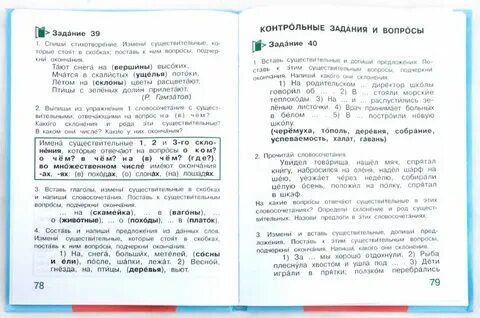 Задание 39
1. Спиши стихотворение. Измени существительные, которые стоят в скобках, поставь к ним вопросы, подчеркни окончания.
Тают снега на (вершины) высоких,
Мчатся в скалистых (ущелья) потоки,
Летом (склоны) цветы расцветали,
Птицы с зелёных долин прилетают.
(Р. Гамзатов)
2. Выпиши из упражнения 1 словосочетания с существительными, отвечающими на вопрос на (в) чём?
Какого склонения и рода эти существительные?
В каком они числе? Какие у них окончания?
Имена существительные 1, 2 и 3-го склонения, которые отвечают на вопросы о ком?
о чём? в чём? на (в) чём? (где?)
во множественном числе имеют окончания
-ах, -ях: (в) походах, (о) слонах, (на) лошадях.
3. Вставь глаголы, измени существительные в скобках и напиши словосочетания. Поставь к существительным вопросы, подчеркни окончания.
... на (скамейка), ... в (вагоны), ...
о (животные), ... о (походы), ... в (платок).
4. Составь и напиши предложения из данных слов.
Измени существительные, которые стоят в скобках, поставь к ним вопросы, подчеркни окончания.
1) На, снега, больших, метелей, (сосны
и ели), после, шапки, лежат. 2) Весной,
гнёзда, на, птицы, (деревья), вьют.
78
КОНТРОЛЬНЫЕ ЗАДАНИЯ И ВОПРОСЫ
Задание 40
1. Вставь существительные и допиши предложения. Поставь к этим существительным вопросы, подчеркни окончания. Напиши какого они склонения.
1) На родительском ... директор школы
говорил об ... . 2) В ... стояли морские
теплоходы. 3) На ... и на ... распустились зелёные листочки. 4) Врач принимает больных
в белом ... . 5) В ... построили новую
школу.
(черёмуха, тополь, деревня, собрание,
успеваемость, халат, гавань)
2. Прочитай словосочетания.
Увидел товарища, нашёл мяч, спрятал
книгу, набросился на оленя, надел шарф на
шею, уезжает через неделю, собирали
целую осень, положил на полку, спрятал
в шкаф.
На какие вопросы отвечают существительные в этих
словосочетаниях? Определи склонение и род существительных. Назови предлоги в этих словосочетаниях.
3. Измени и вставь существительные, допиши предложения. Поставь к этим существительным вопросы, подчеркни окончания. Напиши какого они склонения.
1) За ... мы хорошо отдохнули. 2) Рыба
плеснула хвостом и ушла под ... . 3) Дети
играли в прятки: ползком перебрались
79